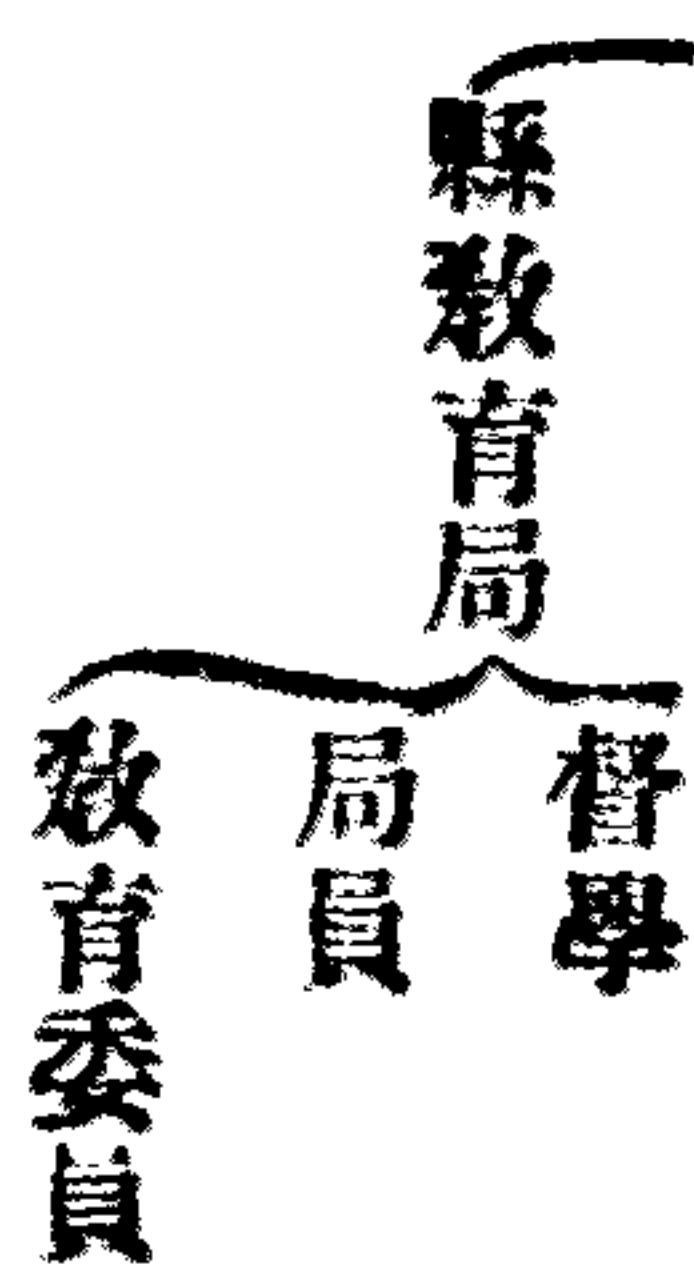 縣教育局
督學
局員
教育委員